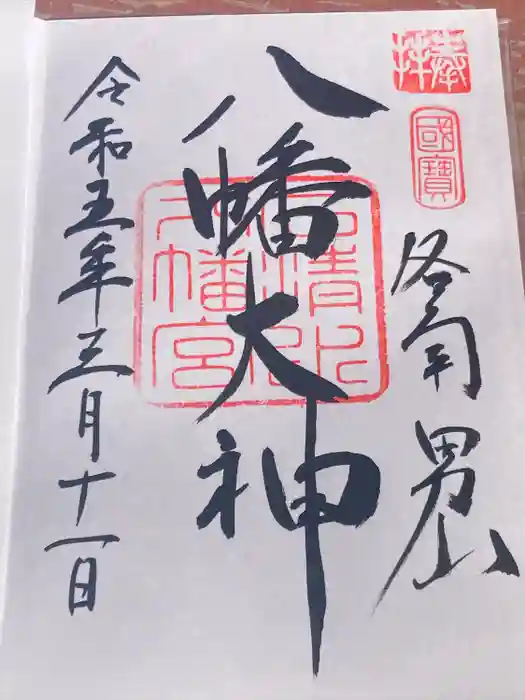 奉拝
國寶
洛南 男山
八幡大神
石清水
八幡宮
令和五年三月十一日